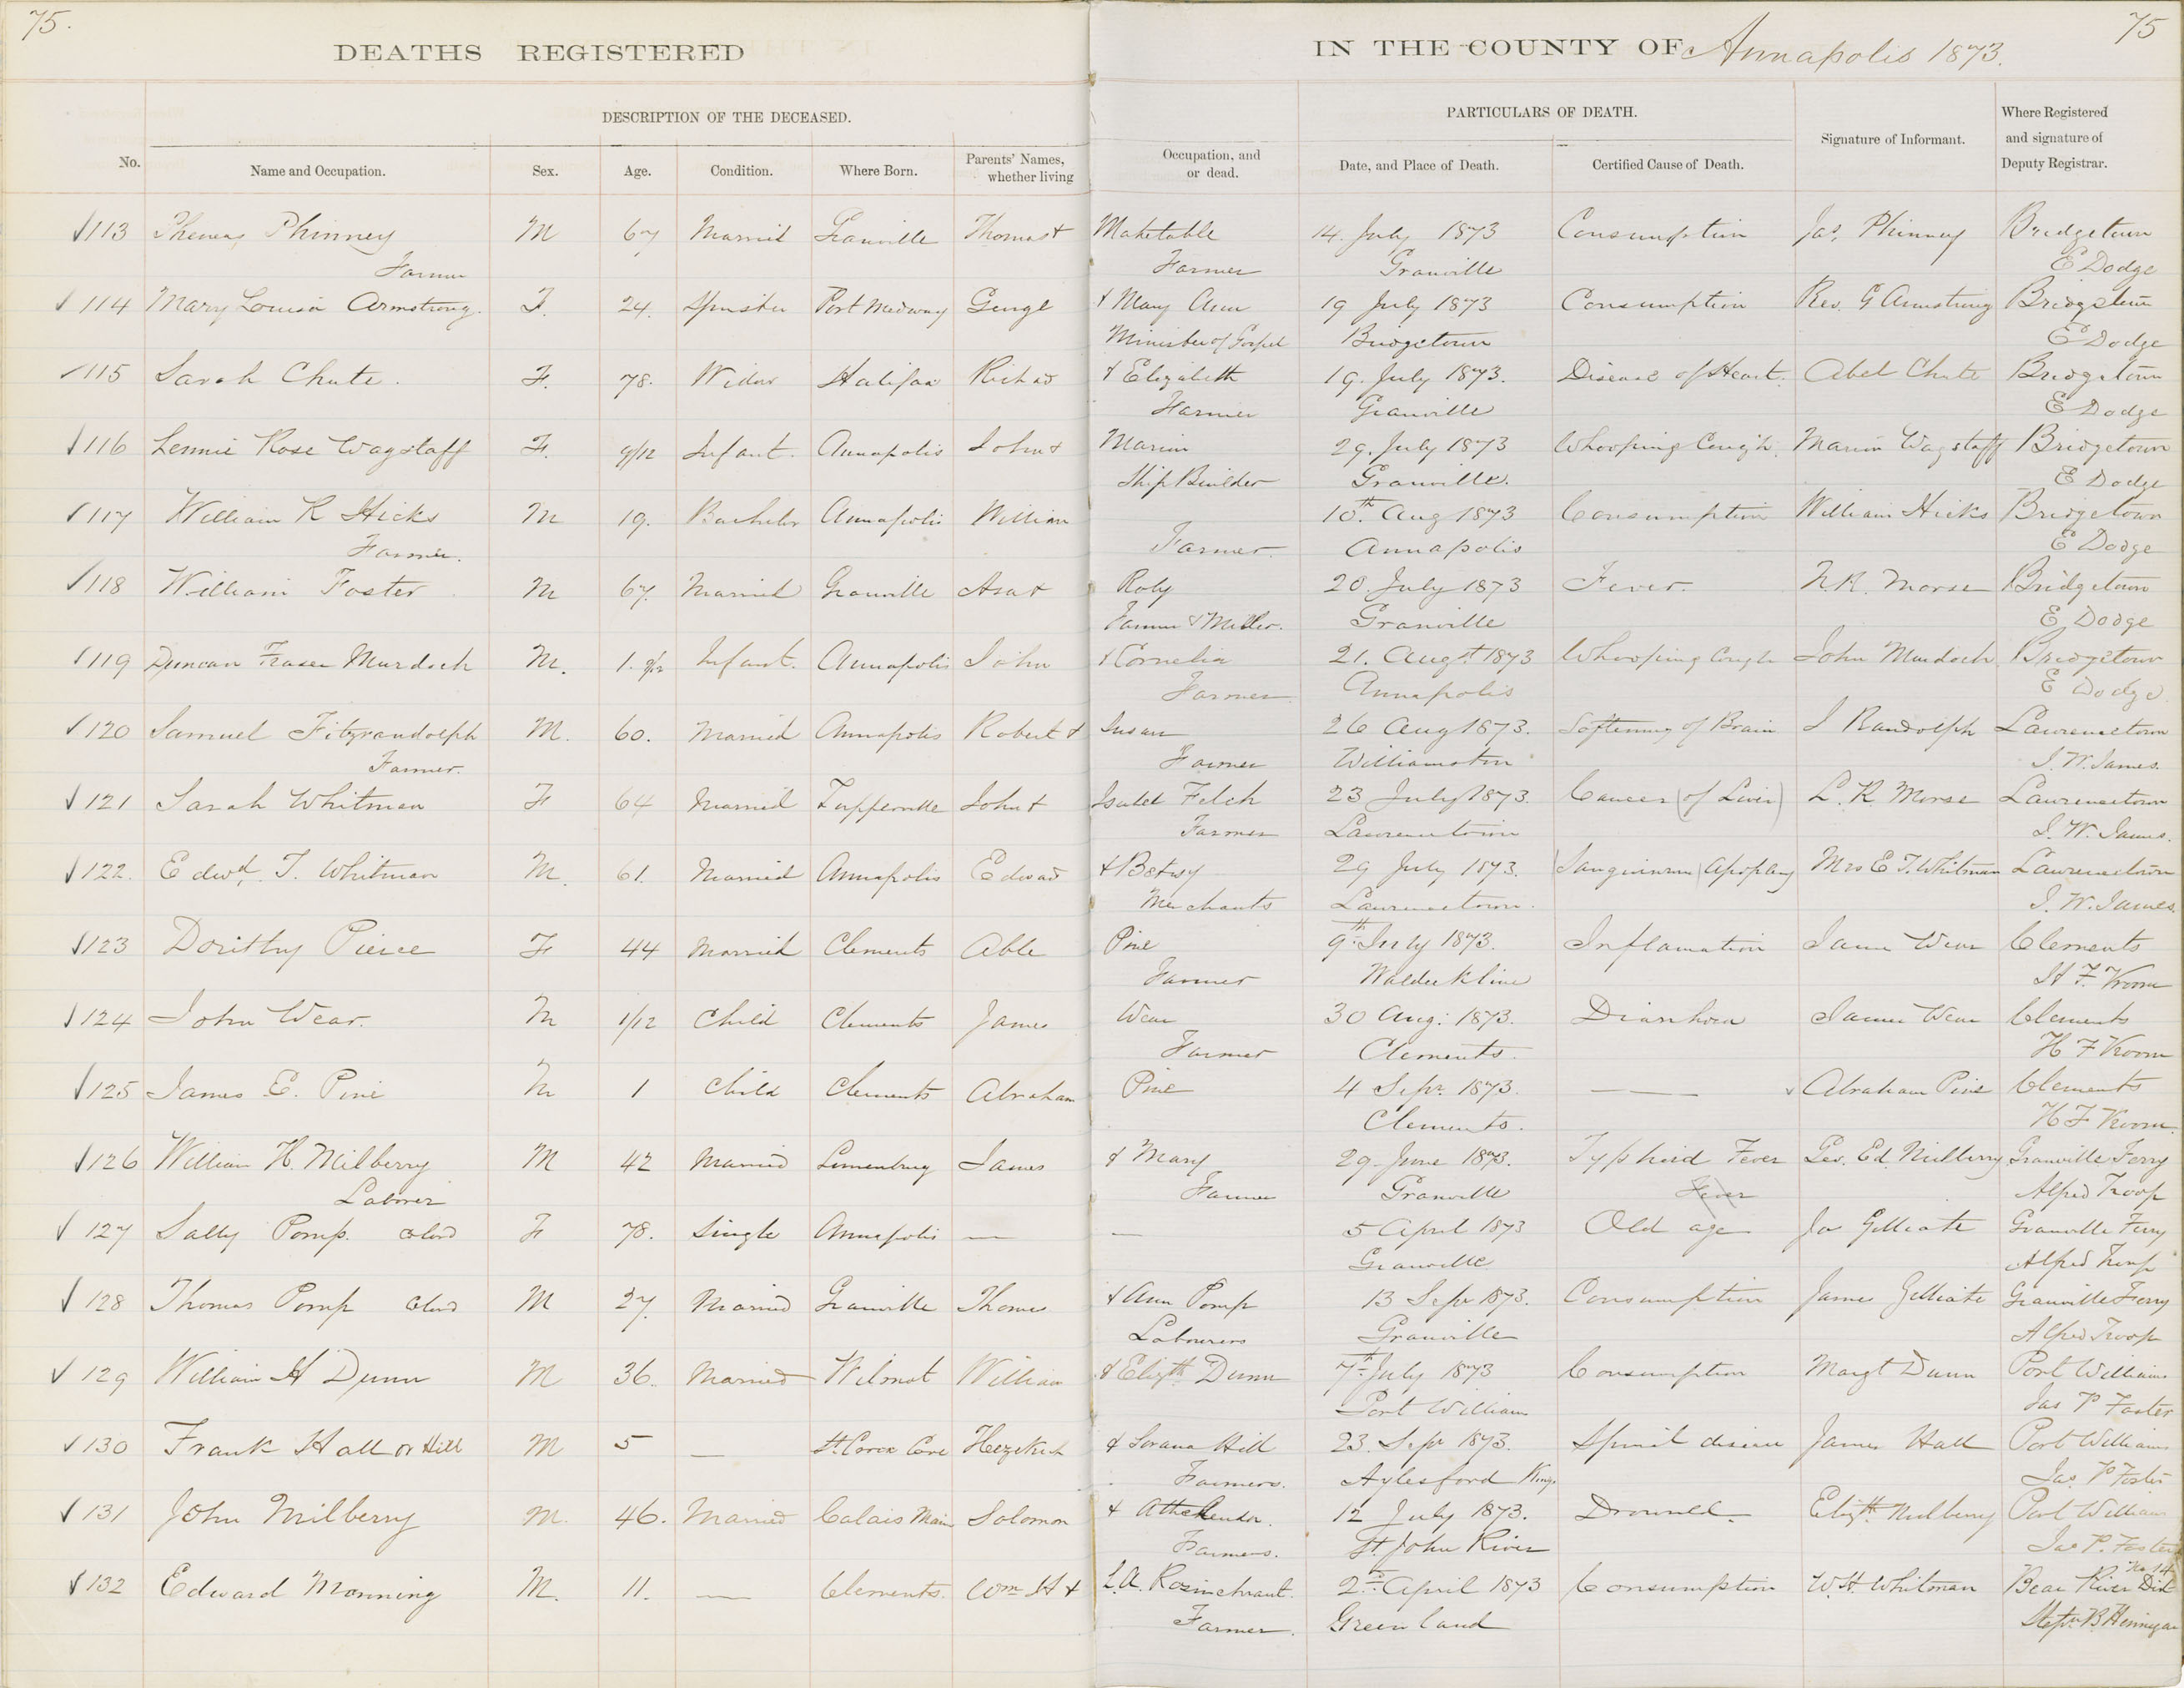 75.
75
DEATHS REGISTERED IN THE COUNTY OF Annapolis 1873.
DESCRIPTION OF THE DECEASED. PARTICULARS OF DEATH.
No. Name and Occupation. Sex. Age. Condition. Where Born. Parents' Names, whether living Occupation, and or dead. Date, and Place of Death. Certified Cause of Death. Signature of Informant. Where Registered and signature of Deputy Registrar.
113 Phinney M 67 Married Granville Thomas & 14. July 1873 Consumption Jas. Phinney Bridgetown
Farmer Farmer Granville E Dodge
114 Mary Louisa Armstrong. F. 24. Spinster Port Medway George & Mary Ann 19 July 1873 Consumption Rev. G Armstrong Bridgetown
Minister of Gospel Bridgetown E Dodge
115 Sarah Chute. F. 78. Widow Halifax Richard & Elizabeth 19. July 1873. Disease of Heart. Abel Chute Bridgetown
Farmer Granville E Dodge
116 Lennie Rose Wagstaff F. 9/12 Infant. Annapolis John & Marion 29. July 1873 Whooping Cough. Marion Wagstaff Bridgetown
Ship Builder Granville. E Dodge
117 William R Hicks M 19. Bachelor Annapolis William 10th. Aug 1873 Consumption William Hicks Bridgetown
Farmer. Farmer. Annapolis E Dodge
118 William Foster M 67. Married Granville Asa & Roby 20. July 1873 Fever. Morse Bridgetown
Farmer & Miller. Granville E Dodge
119 Duncan Fraser Murdoch M. 1. Infant. Annapolis John & Cornelia 21. Augst 1873 Whooping Cough John Murdoch Bridgetown
Farmer Annapolis E Dodge
120 Samuel Fitzrandolph M. 60. Married Annapolis Robert & Susan 26 Aug 1873. Softening of Brain S Randolph Lawrencetown
Farmer. Farmer Williamston J. W. James.
121 Sarah Whitman F 64 Married Tupperville John & Isabel Felch 23 July 1873. Cancer (of Liver) L. R. Morse Lawrencetown
Farmer Lawrencetown J. W. James.
122. Edwd. T. Whitman M. 61. Married Annapolis Edward & Betsy 29 July 1873. Mrs E T. Whitman Lawrencetown
Merchants Lawrencetown. J. W. James
123 Dorithy Pierce F 44 Married Clements Able Pine 9th July 1873. Inflamation James Wear Clements
Farmer Waldeckline H F. Vroom
124 John Wear. M 1/12 Child Clements James Wear 30 Aug: 1873. Diarrhoea James Wear Clements
Farmer Clements. H F Vroom
125 James E. Pine M 1 Child Clements Abraham Pine 4 Sepr. 1873. — Abraham Pine Clements
Clements. H F Vroom.
126 William H. Milberry M 42 Married Lunenburg James & Mary 29 June 1873. Typhoid Fever Geo. Ed. Milberry Granville Ferry
Laborer Farmer Granville Fever Alfred Troop
127 Sally Pomp. Colord F 78. Single Annapolis — — 5 April 1873 Old age Ja Gilliate Granville Ferry
Granville Alfred Troop
128 Thomas Pomp Colord M 27. Married Granville Thomas & Ann Pomp 13 Sepr 1873. Consumption James Gilliate Granville Ferry
Labourers Granville Alfred Troop
129 William H Dunn M 36. Married Wilmot William & Elizth Dunn 7th July 1873 Consumption Margt Dunn Port William
Port William Jas P Foster
130 Frank Hall or Hill M 5 — St. Croix Cove Hezekiah & Lorana Hill 23. Sepr 1873. Spinal disease James Hall Port William
Farmers. Aylesford Kings Jas. P Foster
131 John Milberry M. 46. Married Calais Main Solomon & 12 July 1873. Drowned. Elizth Milberry Port William
Farmers. St John River Jas P. Foster
132 Edward Monning M. 11. — Clements. Wm H & L. A. 2d. April 1873 Consumption W. H. Whitman Bear River Dist No 14
Farmer. Greenland Stepn. B. Hennigar